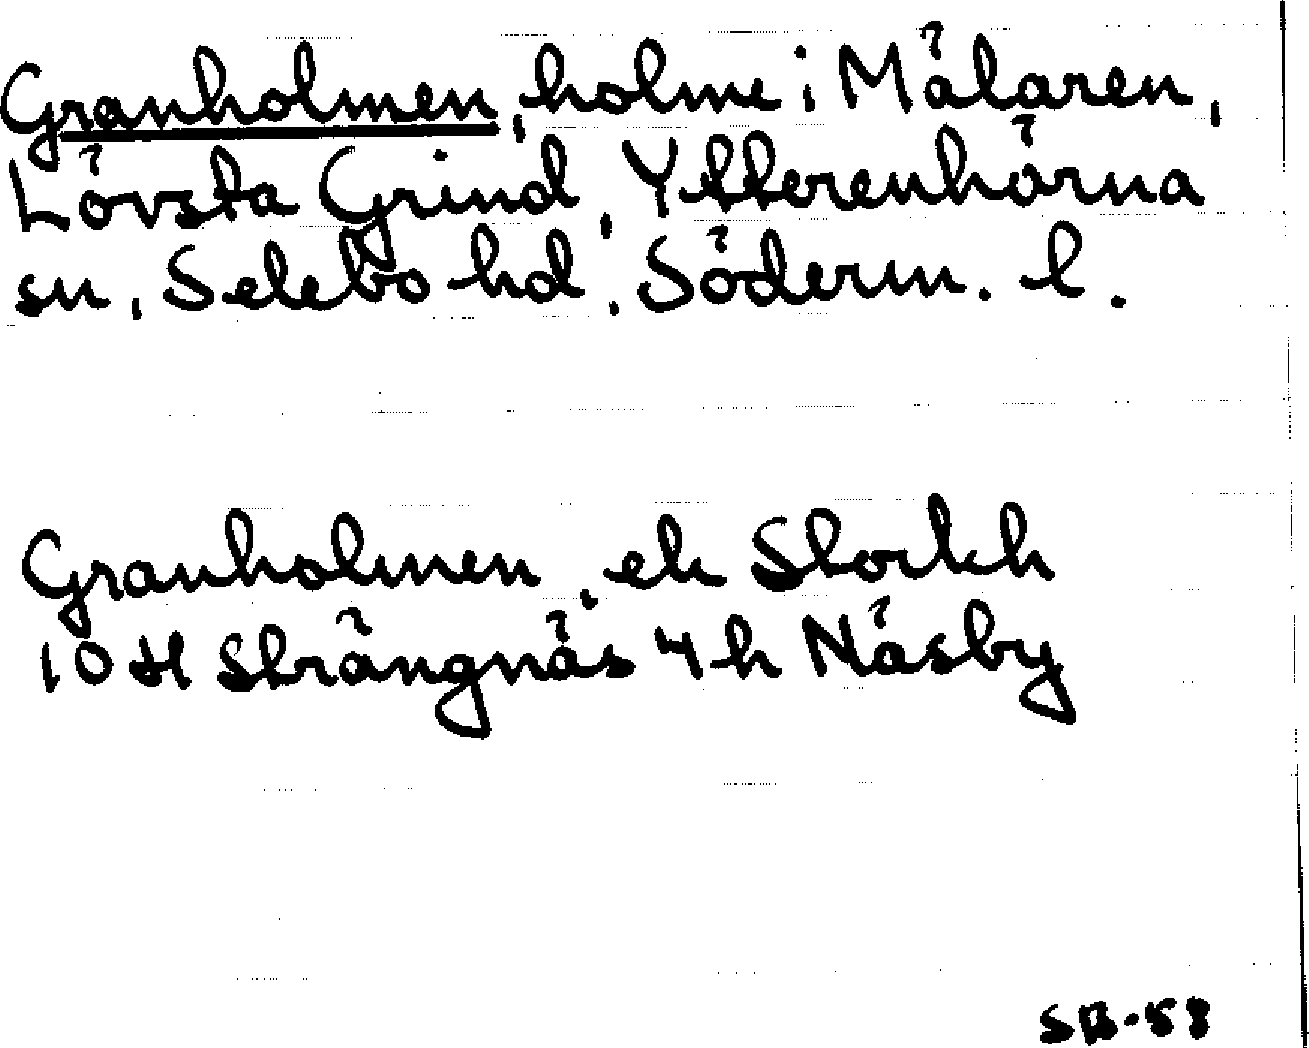 Granholmen, holme i Mälaren,
Lövsta Grind, Ytterenhörna
sn, Selebo hd, Söderm. l.
Granholmen, ek Stockh
10 H Strängnäs 4 h Näsby
SB-58